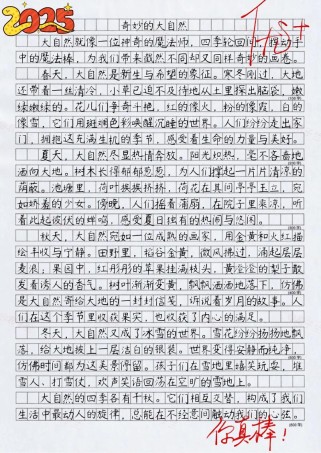 2025
奇妙的大自然
大自然就像一位神奇的魔法师,四季轮回间,挥动手
中的魔法棒,为我们带来截然不同却又同样奇妙的画卷。
春天,大自然是新生与希望的象征。寒冬刚过,大地
还带着一丝清冷,小草已迫不及待地从土里探出脑袋,嫩
绿嫩绿的。花儿们争奇斗艳,红的像火,粉的像霞,白的
像雪,它们用斑斓色彩唤醒沉睡的世界。人们纷纷走出家
门,拥抱这充满生机的季节,感受着生命的力量与美好。
夏天,大自然尽显热情奔放。阳光炽热,毫不吝啬地
洒向大地。树木长得郁郁葱葱,为人们撑起一片片清凉的
荫蔽。池塘里,荷叶挨挨挤挤,荷花在其间亭亭玉立,宛
如娇羞的少女。傍晚,人们摇着蒲扇,在院子里乘凉,听
着此起彼伏的蝉鸣,感受夏日独有的热闹与悠闲。
秋天,大自然宛如一位成熟的画家,用金黄和火红描
绘丰收与宁静。田野里,稻谷金黄,微风拂过,涌起层层
麦浪;果园中,红彤彤的苹果挂满枝头,黄澄澄的梨子散
发着诱人的香气。树叶渐渐变黄,飘飘洒洒地落下,仿佛
是大自然寄给大地的一封封信笺,诉说着岁月的故事。人
们在这个季节里收获果实,也收获了内心的满足。
冬天,大自然又成了冰雪的世界。雪花纷纷扬扬地飘
落,给大地披上一层洁白的银装。世界变得安静而纯净,
仿佛时间都为这美景停留。孩子们在雪地里嬉笑玩耍,堆
雪人、打雪仗,欢声笑语回荡在空旷的雪地上。
大自然的四季各有千秋。它们相互交替,构成了我们
生活中最动人的旋律,总能在不经意间触动我们的心弦。
你真棒!